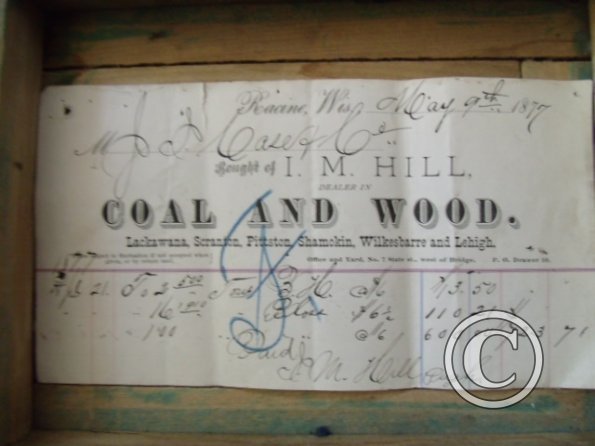 Racine, Wis, May 9th 1877
M J I Case & Co
Bought of I. M. HILL,
DEALER IN
COAL AND WOOD.
Lackawana, Scranton, Pittston, Shamokin, Wilkesbarre and Lehigh.
Office and Yard, No. 7 State st., west of Bridge. P. O. Drawer
1877
21. To 2 500 Tons B. H. 13.50
16 Bloss 6½ 110
100 60
"Paid" I. M. Hill
©